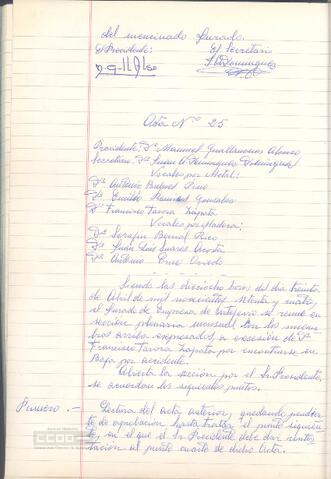 del mencionado Jurado.
El Presidente: El Secretario
Acta Nº 25
Presidente: Dn Manuel Guillermo Alonso
Secretario: Dn Juan A. Domínguez Domínguez
Vocales por Metal:
Dn Antonio Pino
Dn Emilio González
Dn Francisco Tavora Zapata
Vocales por
Dn Serafín Bernal Rico
Dn Juan Luis Suares Acosta
Dn Antonio Cruz Oviedo
Siendo las dieciocho horas del día treinta
de Abril de mil novecientos setenta y cuatro,
el Jurado de Empresa de se reune en
sección plenaria mensual con los miem-
bros arriba expresados a excesión de Dn
Francisco Tavora Zapata por encontrarse en
Baja por accidente.
Abierta la sección por el Sr. Presidente,
se acuerdan los siguientes puntos.
Primero.- Lectura del acta anterior, quedando pendien-
te de aprobación hasta tratar el punto siguien-
te, en el que el Sr. Presidente debe dar contes-
tación al punto cuarto de dicha Acta.
CCOO